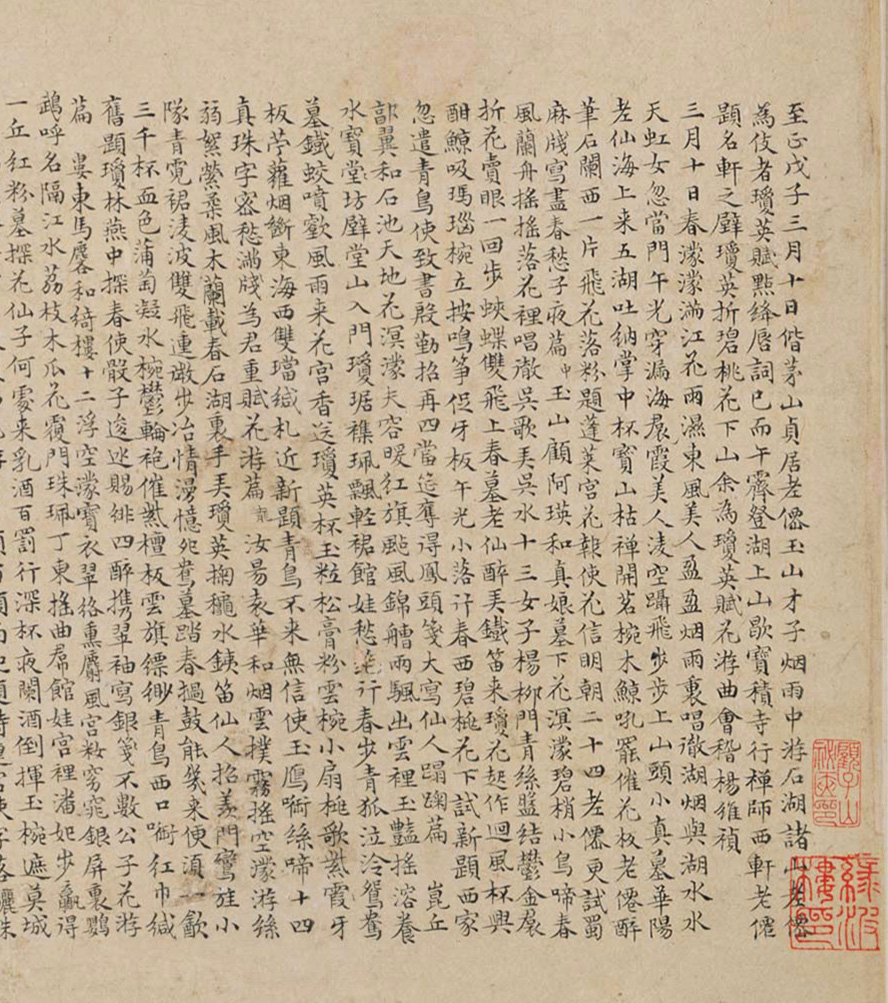 至正戊子三月十日偕茅山貞居老僊玉山才子烟雨中游石湖諸山老僊
為伎者瓊英賦點絳唇詞已而午霽登湖上山歇寶積寺行禪師西軒老僊
題名軒之壁瓊英折碧桃花下山余為瓊英賦花游曲會稽楊維禎
三月十日春濛濛滿江花雨濕東風美人盈盈烟雨裏唱徹湖烟與湖水水
天虹女忽當門午光穿漏海裠霞美人凌空躡飛步步上山頭小真墓華陽
老仙海上来五湖吐納掌中杯寶山枯禪開茗椀木鯨吼罷催花板老僊醉
筆石闌西一片飛花落粉題蓬萊宮花報使花信明朝二十四老僊更試蜀
麻牋寫盡春愁子夜篇 玉山顧阿瑛和真娘墓下花溟濛碧梢小鳥啼春
風蘭舟搖搖落花裡唱徹吳歌弄吳水十三女子楊柳門青絲盤結鬱金裠
折花賣眼一回步蛺蝶雙飛上春墓老仙醉弄鐵笛来瓊花起作迴風杯興
酣鯨吸瑪瑙椀立按鳴箏促牙板午光小落行春西碧桃花下試新題西家
忽遣青鳥使致書殷勤招再四當筵奪得鳳頭箋大寫仙人蹋踘篇 崑丘
郭翼和石池天地花溟濛夫容暖紅旗颭風錦艚雨颿出雲裡玉豔搖溶養
水寶堂坊壁堂山入門瓊琚襍珮飄輕裙館娃愁行春步青狐泣冷鴛鴦
墓鐵蛟噴歠風雨来花宮香送瓊英杯玉粒松膏粉雲椀小扇桃歌紫霞牙
板荢蘿烟斷東海西雙璫緘札近新題青鳥不来無信使玉鴈啣絲啼十四
真珠字密愁滿牋為君重賦花游篇 汝昜袁華和烟雲撲霧搖空濛游絲
弱絮縈桑風木蘭載春石湖裏手弄瓊英掬龝水銕笛仙人招羨門鸞旌小
隊青霓裙淩波雙飛連璬步冶情漫憶鴛墓踏春撾鼓能幾来便須一歠
三千杯面色蒲萄凝水椀鬱輪袍催紫檀板雲旗縹緲青鳥西口啣紅巾緘
舊題瓊林燕中探春使骰子逡迯賜緋四醉携翠袖寫銀箋不數公子花游
篇 婁東馬麐和綺樓十二浮空濛寶衣翠絡熏麝風宮妝窈窕銀屏裏鸚
鵡呼名隔江水荔枝木瓜花覆門珠珮丁東搖曲裠館娃宮裡潘妃步贏得
一丘紅粉墓探花仙子何處来乳酒百罰行深杯夜闌酒倒揮玉椀遮莫城